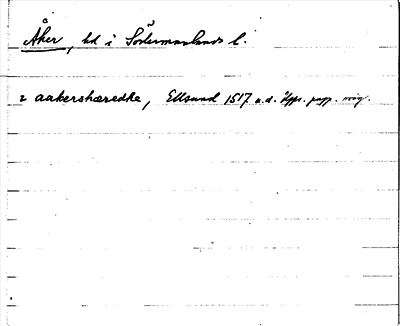 Åker, hd i Södermanlands l.
i aakershæredhe, Ellsund 1517 u.d. Upps. papp. orig.